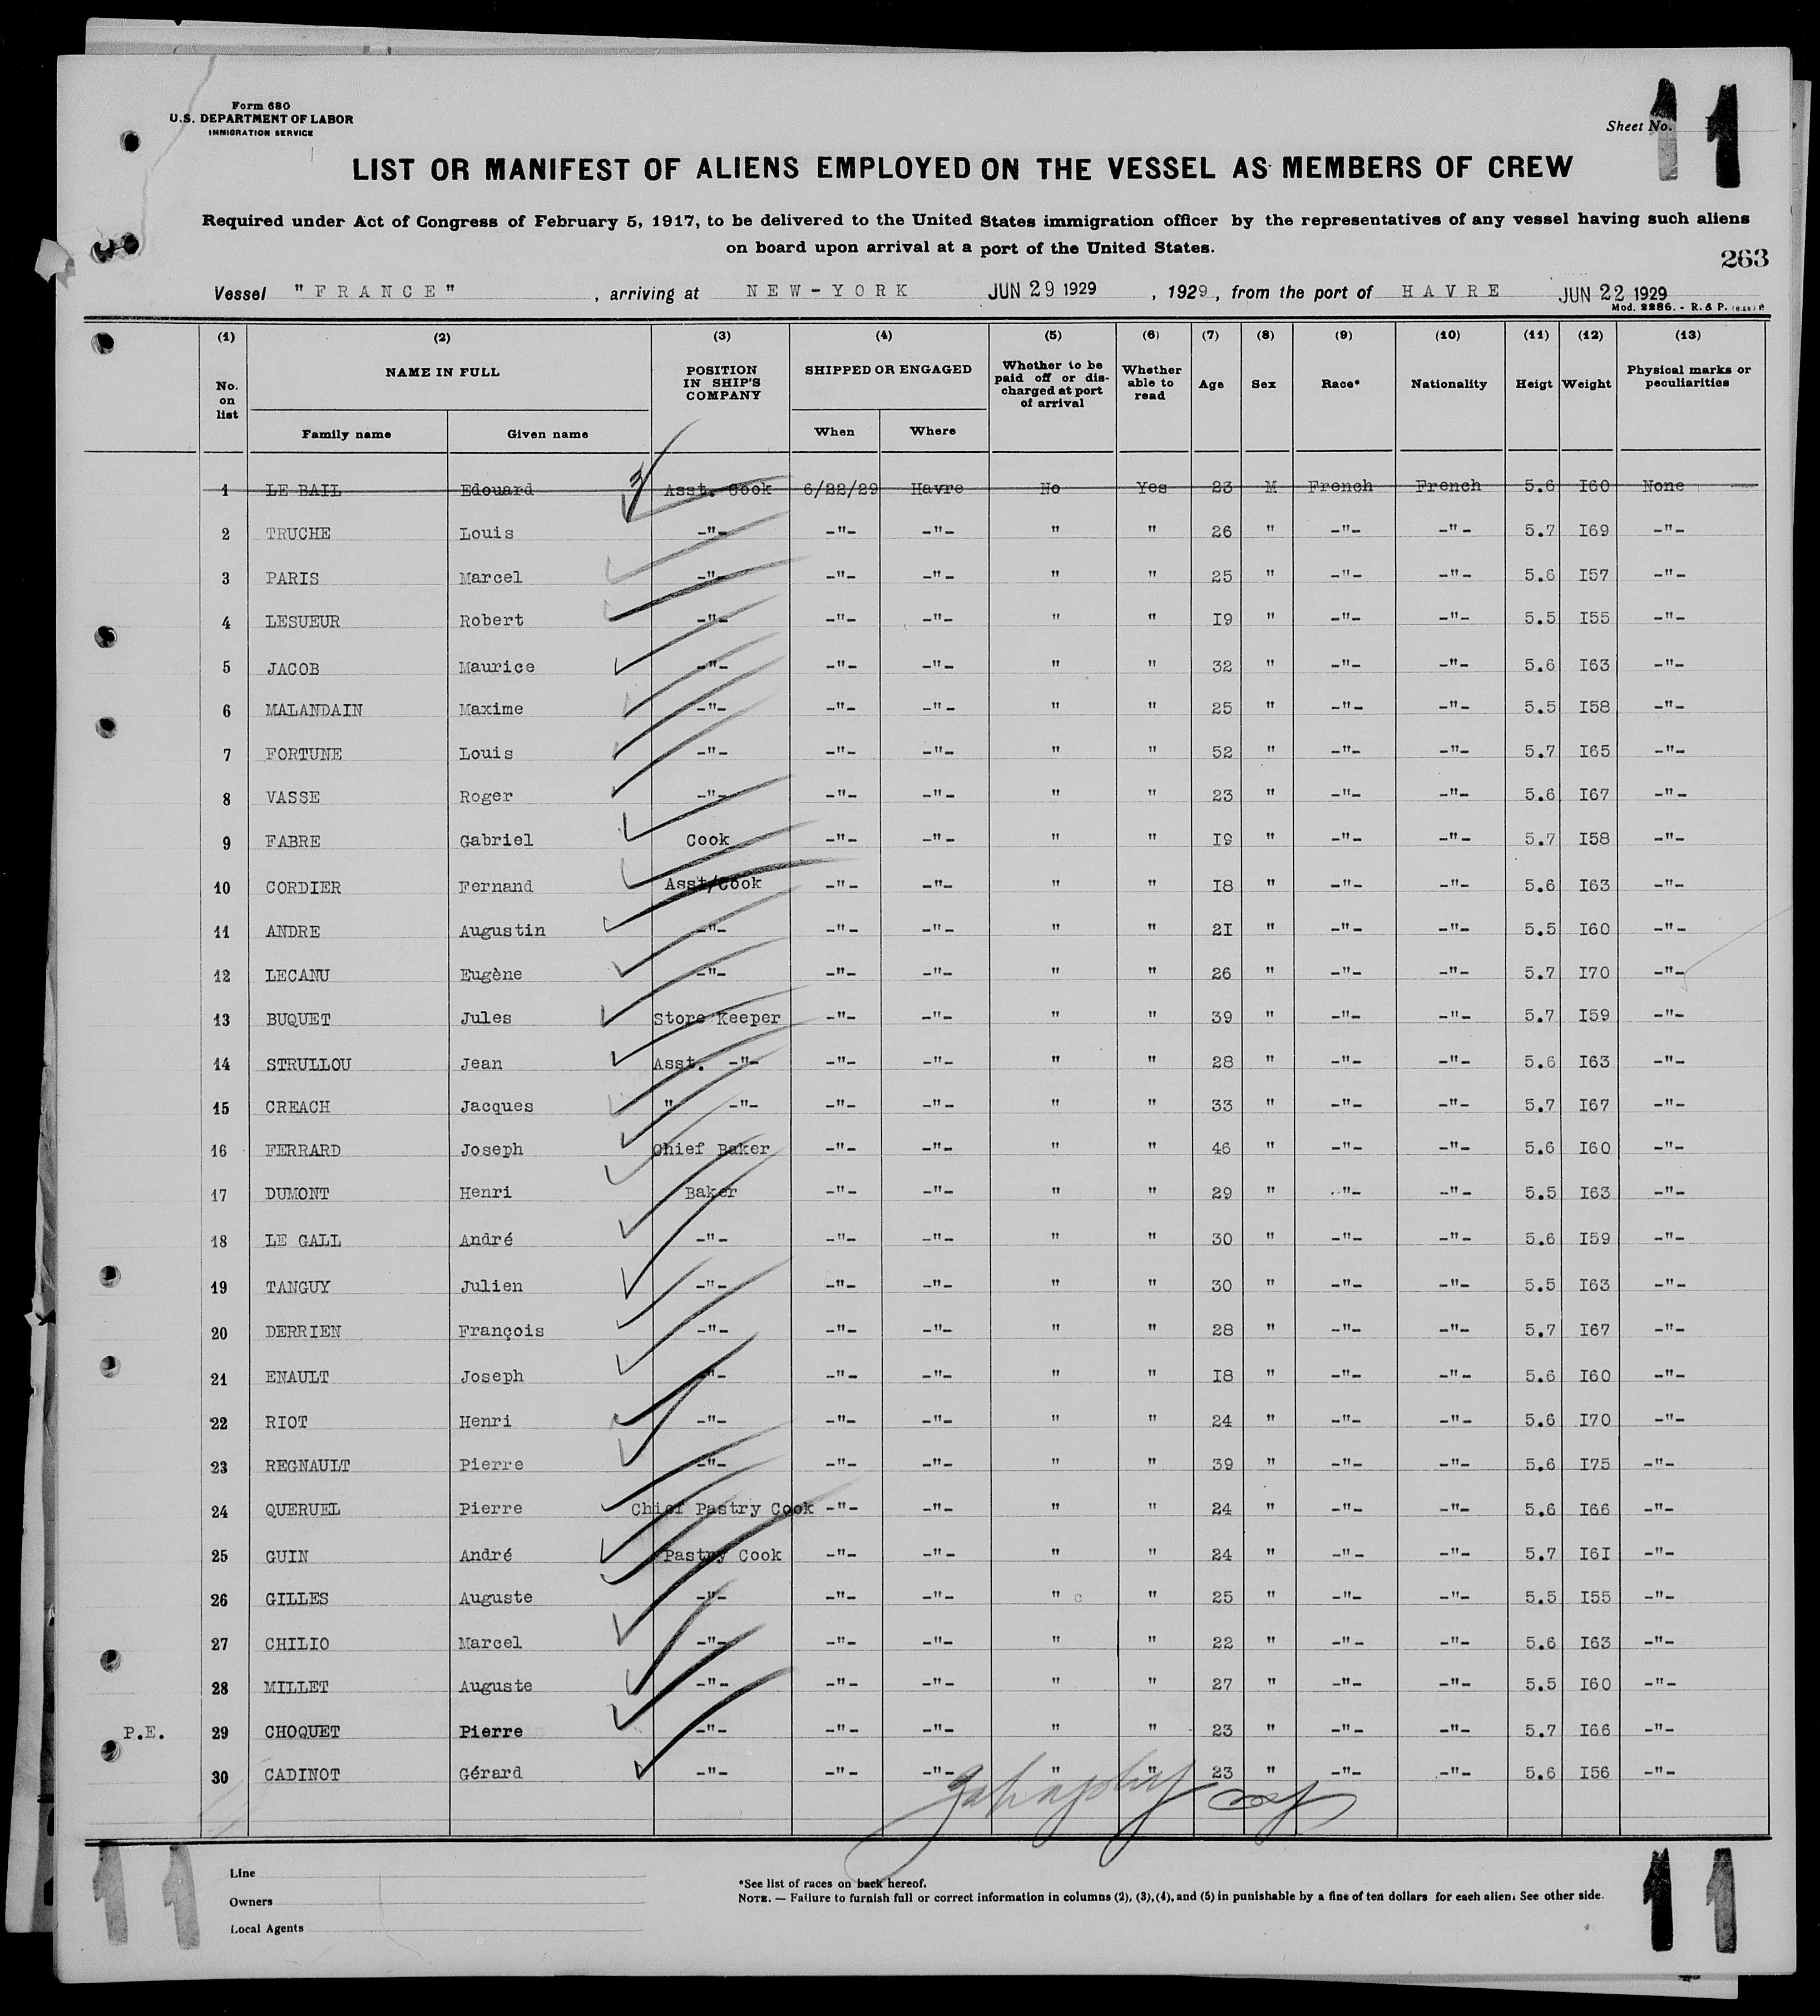 Form 680
U.S. DEPARTMENT OF LABOR
IMMIGRATION SERVICE
Sheet No. 11
LIST OR MANIFEST OF ALIENS EMPLOYED ON THE VESSEL AS MEMBERS OF CREW
Required under Act of Congress of February 5, 1917, to be delivered to the United States immigration officer by the representatives of any vessel having such aliens
on board upon arrival at a port of the United States.
263
Vessel "FRANCE", arriving at NEW-YORK JUN 29 1929, 1929, from the port of HAVRE JUN 22 1929
Mod. 2286. - R. & P.
(1) (2) (3) (4) (5) (6) (7) (8) (9) (10) (11) (12) (13)
No. on list NAME IN FULL POSITION IN SHIP'S COMPANY SHIPPED OR ENGAGED Whether to be paid off or discharged at port of arrival Whether able to read Age Sex Race* Nationality Heigt Weight Physical marks or peculiarities
Family name Given name When Where
1 LE BAIL Edouard Asst. Cook 6/22/29 Havre No Yes 23 M French French 5.6 I60 None
2 TRUCHE Louis -"- -"- -"- " " 26 " -"- -"- 5.7 I69 -"-
3 PARIS Marcel -"- -"- -"- " " 25 " -"- -"- 5.6 I57 -"-
4 LESUEUR Robert -"- -"- -"- " " I9 " -"- -"- 5.5 I55 -"-
5 JACOB Maurice -"- -"- -"- " " 32 " -"- -"- 5.6 I63 -"-
6 MALANDAIN Maxime -"- -"- -"- " " 25 " -"- -"- 5.5 I58 -"-
7 FORTUNE Louis -"- -"- -"- " " 52 " -"- -"- 5.7 I65 -"-
8 VASSE Roger -"- -"- -"- " " 23 " -"- -"- 5.6 I67 -"-
9 FABRE Gabriel Cook -"- -"- " " I9 " -"- -"- 5.7 I58 -"-
10 CORDIER Fernand Asst/Cook -"- -"- " " I8 " -"- -"- 5.6 I63 -"-
11 ANDRE Augustin -"- -"- -"- " " 2I " -"- -"- 5.5 I60 -"-
12 LECANU Eugène -"- -"- -"- " " 26 " -"- -"- 5.7 I70 -"-
13 BUQUET Jules Store Keeper -"- -"- " " 39 " -"- -"- 5.7 I59 -"-
14 STRULLOU Jean Asst. -"- -"- -"- " " 28 " -"- -"- 5.6 I63 -"-
15 CREACH Jacques " -"- -"- -"- " " 33 " -"- -"- 5.7 I67 -"-
16 FERRARD Joseph Chief Baker -"- -"- " " 46 " -"- -"- 5.6 I60 -"-
17 DUMONT Henri Baker -"- -"- " " 29 " -"- -"- 5.5 I63 -"-
18 LE GALL André -"- -"- -"- " " 30 " -"- -"- 5.6 I59 -"-
19 TANGUY Julien -"- -"- -"- " " 30 " -"- -"- 5.5 I63 -"-
20 DERRIEN François -"- -"- -"- " " 28 " -"- -"- 5.7 I67 -"-
21 ENAULT Joseph -"- -"- -"- " " I8 " -"- -"- 5.6 I60 -"-
22 RIOT Henri -"- -"- -"- " " 24 " -"- -"- 5.6 I70 -"-
23 REGNAULT Pierre -"- -"- -"- " " 39 " -"- -"- 5.6 I75 -"-
24 QUERUEL Pierre Chief Pastry Cook -"- -"- " " 24 " -"- -"- 5.6 I66 -"-
25 GUIN André Pastry Cook -"- -"- " " 24 " -"- -"- 5.7 I6I -"-
26 GILLES Auguste -"- -"- -"- " c " 25 " -"- -"- 5.5 I55 -"-
27 CHILIO Marcel -"- -"- -"- " " 22 " -"- -"- 5.6 I63 -"-
28 MILLET Auguste -"- -"- -"- " " 27 " -"- -"- 5.5 I60 -"-
P.E. 29 CHOQUET Pierre -"- -"- -"- " " 23 " -"- -"- 5.7 I66 -"-
30 CADINOT Gérard -"- -"- -"- " " 23 " -"- -"- 5.6 I56 -"-
11
Line
Owners
Local Agents
*See list of races on back hereof.
NOTE. — Failure to furnish full or correct information in columns (2), (3), (4), and (5) in punishable by a fine of ten dollars for each alien. See other side.
11